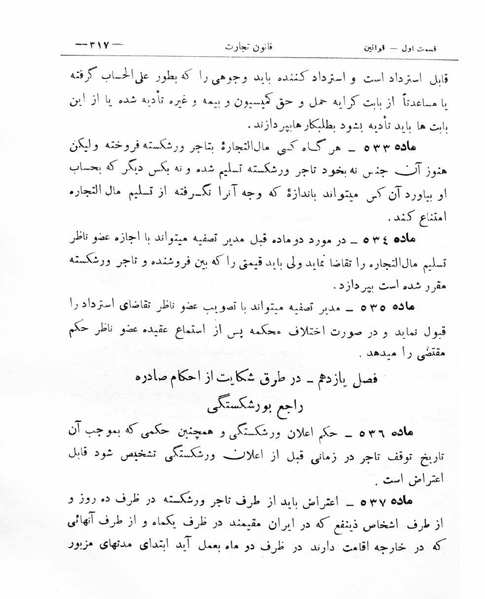 قسمت اول — قوانین
قانون تجارت
—۳۱۷—
قابل استرداد است و استرداد کننده باید وجوهی را که بطور علی‌الحساب گرفته
یا مساعدتاً از بابت کرایه حمل و حق کمیسیون و بیمه و غیره تأدیه شده یا از این
بابت ها باید تأدیه بشود بطلبکارها بپردازند.
ماده ۵۳۳ – هر گاه کسی مال‌التجارهٔ بتاجر ورشکسته فروخته ولیکن
هنوز آن جنس نه بخود تاجر ورشکسته تسلیم شده و نه بکس دیگر که بحساب
او بیاورد آن کس میتواند باندازهٔ که وجه آنرا نگرفته از تسلیم مال التجاره
امتناع کند.
ماده ۵۳۴ – در مورد دو ماده قبل مدیر تصفیه میتواند با اجازه عضو ناظر
تسلیم مال‌التجاره را تقاضا نماید ولی باید قیمتی را که بین فروشنده و تاجر ورشکسته
مقرر شده است بپردازد.
ماده ۵۳۵ – مدیر تصفیه میتواند با تصویب عضو ناظر تقاضای استرداد را
قبول نماید و در صورت اختلاف محکمه پس از استماع عقیده عضو ناظر حکم
مقتضی را میدهد.
فصل یازدهم – در طرق شکایت از احکام صادره
راجع بورشکستگی
ماده ۵۳۶ – حکم اعلان ورشکستگی و همچنین حکمی که بموجب آن
تاریخ توقف تاجر در زمانی قبل از اعلان ورشکستگی تشخیص شود قابل
اعتراض است.
ماده ۵۳۷ – اعتراض باید از طرف تاجر ورشکسته در ظرف ده روز و
از طرف اشخاص ذینفع که در ایران مقیمند در ظرف یکماه و از طرف آنهائی
که در خارجه اقامت دارند در ظرف دو ماه بعمل آید ابتدای مدتهای مزبور